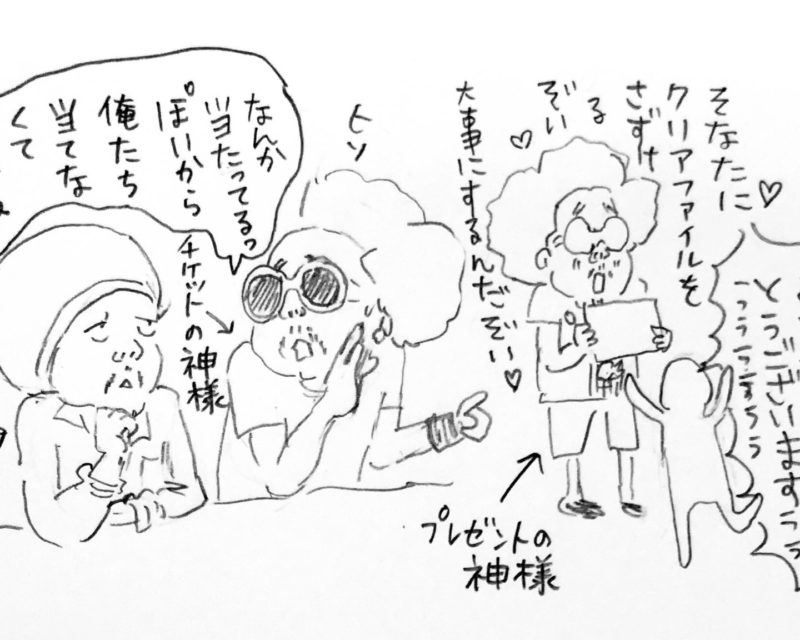 そなたに
クリアファイルを
さずけ
る
ぞい
大事にするんだぞい
とうございますぅぅ
っうぅぅすぅぅ
プレゼントの
神様
ヒソ
なんか
当たってるっ
ぽいから
俺たち
当てな
くて
チケットの神様